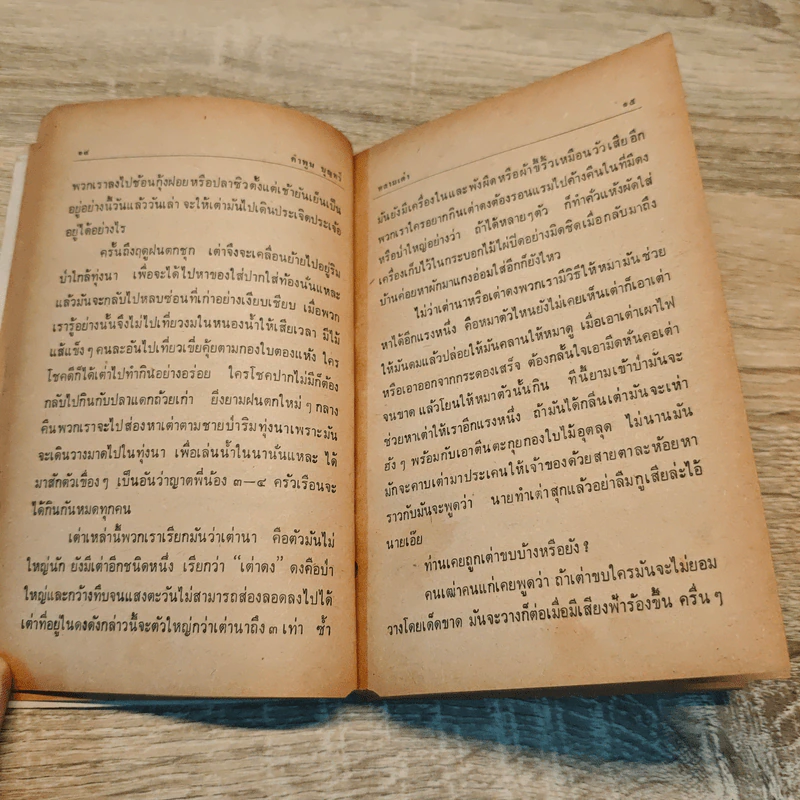 ๑๘
คำพูน บุญทวี
พวกเราลงไปช้อนกุ้งฝอยหรือปลาซิวตั้งแต่เช้ายันเย็นเป็น
อยู่อย่างนี้วันแล้ววันเล่า จะให้เต่ามันไปเดินประเจิดประเจ้อ
อยู่ได้อย่างไร
ครั้นถึงฤดูฝนตกชุก เต่าจึงจะเคลื่อนย้ายไปอยู่ริม
ป่าใกล้ทุ่งนา เพื่อจะได้ไปหาของใส่ปากใส่ท้องนั่นแหละ
แล้วมันจะกลับไปหลบซ่อนที่เก่าอย่างเงียบเชียบ เมื่อพวก
เรารู้อย่างนั้นจึงไม่ไปเที่ยวงมในหนองน้ำให้เสียเวลา มีไม้
แส้แข็งๆ คนละอันไปเที่ยวเขี่ยคุ้ยตามกองใบตองแห้ง ใคร
โชคดีก็ได้เต่าไปทำกินอย่างอร่อย ใครโชคปากไม่มีก็ต้อง
กลับไปกินกับปลาแดกถ้วยเก่า ยิ่งยามฝนตกใหม่ๆ กลาง
คืนพวกเราจะไปส่องหาเต่าตามชายป่าริมทุ่งนาเพราะมัน
จะเดินวางมาดไปในทุ่งนา เพื่อเล่นน้ำในนานั่นแหละ ได้
มาสักตัวเขื่องๆ เป็นอันว่าญาติพี่น้อง ๓—๔ ครัวเรือนจะ
ได้กินกันหมดทุกคน
เต่าเหล่านี้พวกเราเรียกมันว่าเต่านา คือตัวมันไม่
ใหญ่นัก ยังมีเต่าอีกชนิดหนึ่ง เรียกว่า “เต่าดง” ดงคือป่า
ใหญ่และกว้างทึบจนแสงตะวันไม่สามารถส่องลอดลงไปได้
เต่าที่อยู่ในดงดังกล่าวนี้จะตัวใหญ่กว่าเต่านาถึง ๓ เท่า ซ้ำ
๑๕
มันยังมีเครื่องในและพังผืดหรือผ้าขี้ริ้วเหมือนวัวเสียอีก
พวกเราใครอยากกินเต่าดงต้องรอนแรมไปค้างคืนในที่มีดง
หรือป่าใหญ่อย่างว่า ถ้าได้หลายๆตัว ก็ทำคั่วแห้งผัดใส่
เครื่องเก็บไว้ในกระบอกไม้ไผ่ปิดอย่างมิดชิดเมื่อกลับมาถึง
บ้านค่อยหาผักมาแกงอ่อมใส่อีกก็ยังไหว
ไม่ว่าเต่านาหรือเต่าดงพวกเรามีวิธีให้หมามันช่วย
หาได้อีกแรงหนึ่ง คือหมาตัวไหนยังไม่เคยเห็นเต่าก็เอาเต่า
ให้มันดมแล้วปล่อยให้มันคลานให้หมาดู เมื่อเอาเต่าเผาไฟ
หรือเอาออกจากกระดองเสร็จ ต้องกลั้นใจเอามีดหั่นคอเต่า
จนขาด แล้วโยนให้หมาตัวนั้นกิน ทีนี้ยามเข้าป่ามันจะ
ช่วยหาเต่าให้เราอีกแรงหนึ่ง ถ้ามันได้กลิ่นเต่ามันจะเห่า
ฮ้งๆ พร้อมกับเอาตีนตะกุยกองใบไม้อุตลุด ไม่นานมัน
มักจะคาบเต่ามาประเคนให้เจ้าของด้วยสายตาละห้อยหา
ราวกับมันจะพูดว่า นายทำเต่าสุกแล้วอย่าลืมกูเสียล่ะไอ้
นายเอ๊ย
ท่านเคยถูกเต่าขบบ้างหรือยัง ?
คนเฒ่าคนแก่เคยพูดว่า ถ้าเต่าขบใครมันจะไม่ยอม
วางโดยเด็ดขาด มันจะวางก็ต่อเมื่อมีเสียงฟ้าร้องขึ้น ครื่นๆ